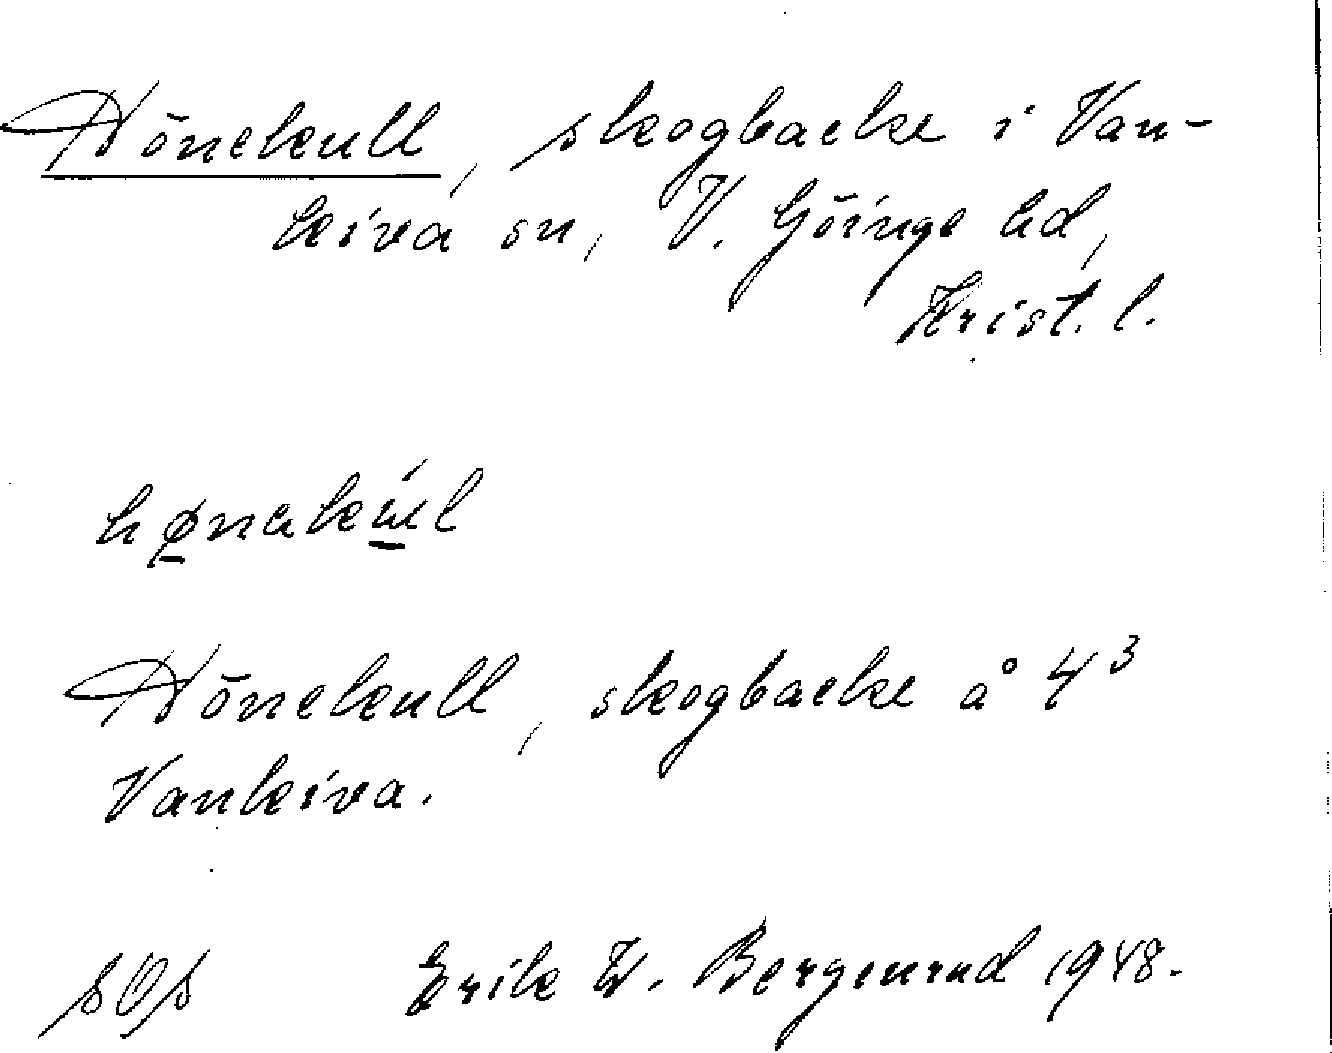 Hönekull, skogbacke i Van-
kiva sn, V. Göinge hd,
Krist. l.
Hönekull, skogbacke å 4³
Vankiva.
Erik W. Bergenrud 1948.